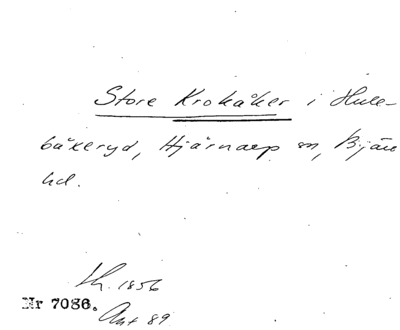 Store Krokåker i Hule-
bäkeryd, Hjärnarp sn, Bjäre
hd.
Sk. 1856
Nr 7086.
Akt 89